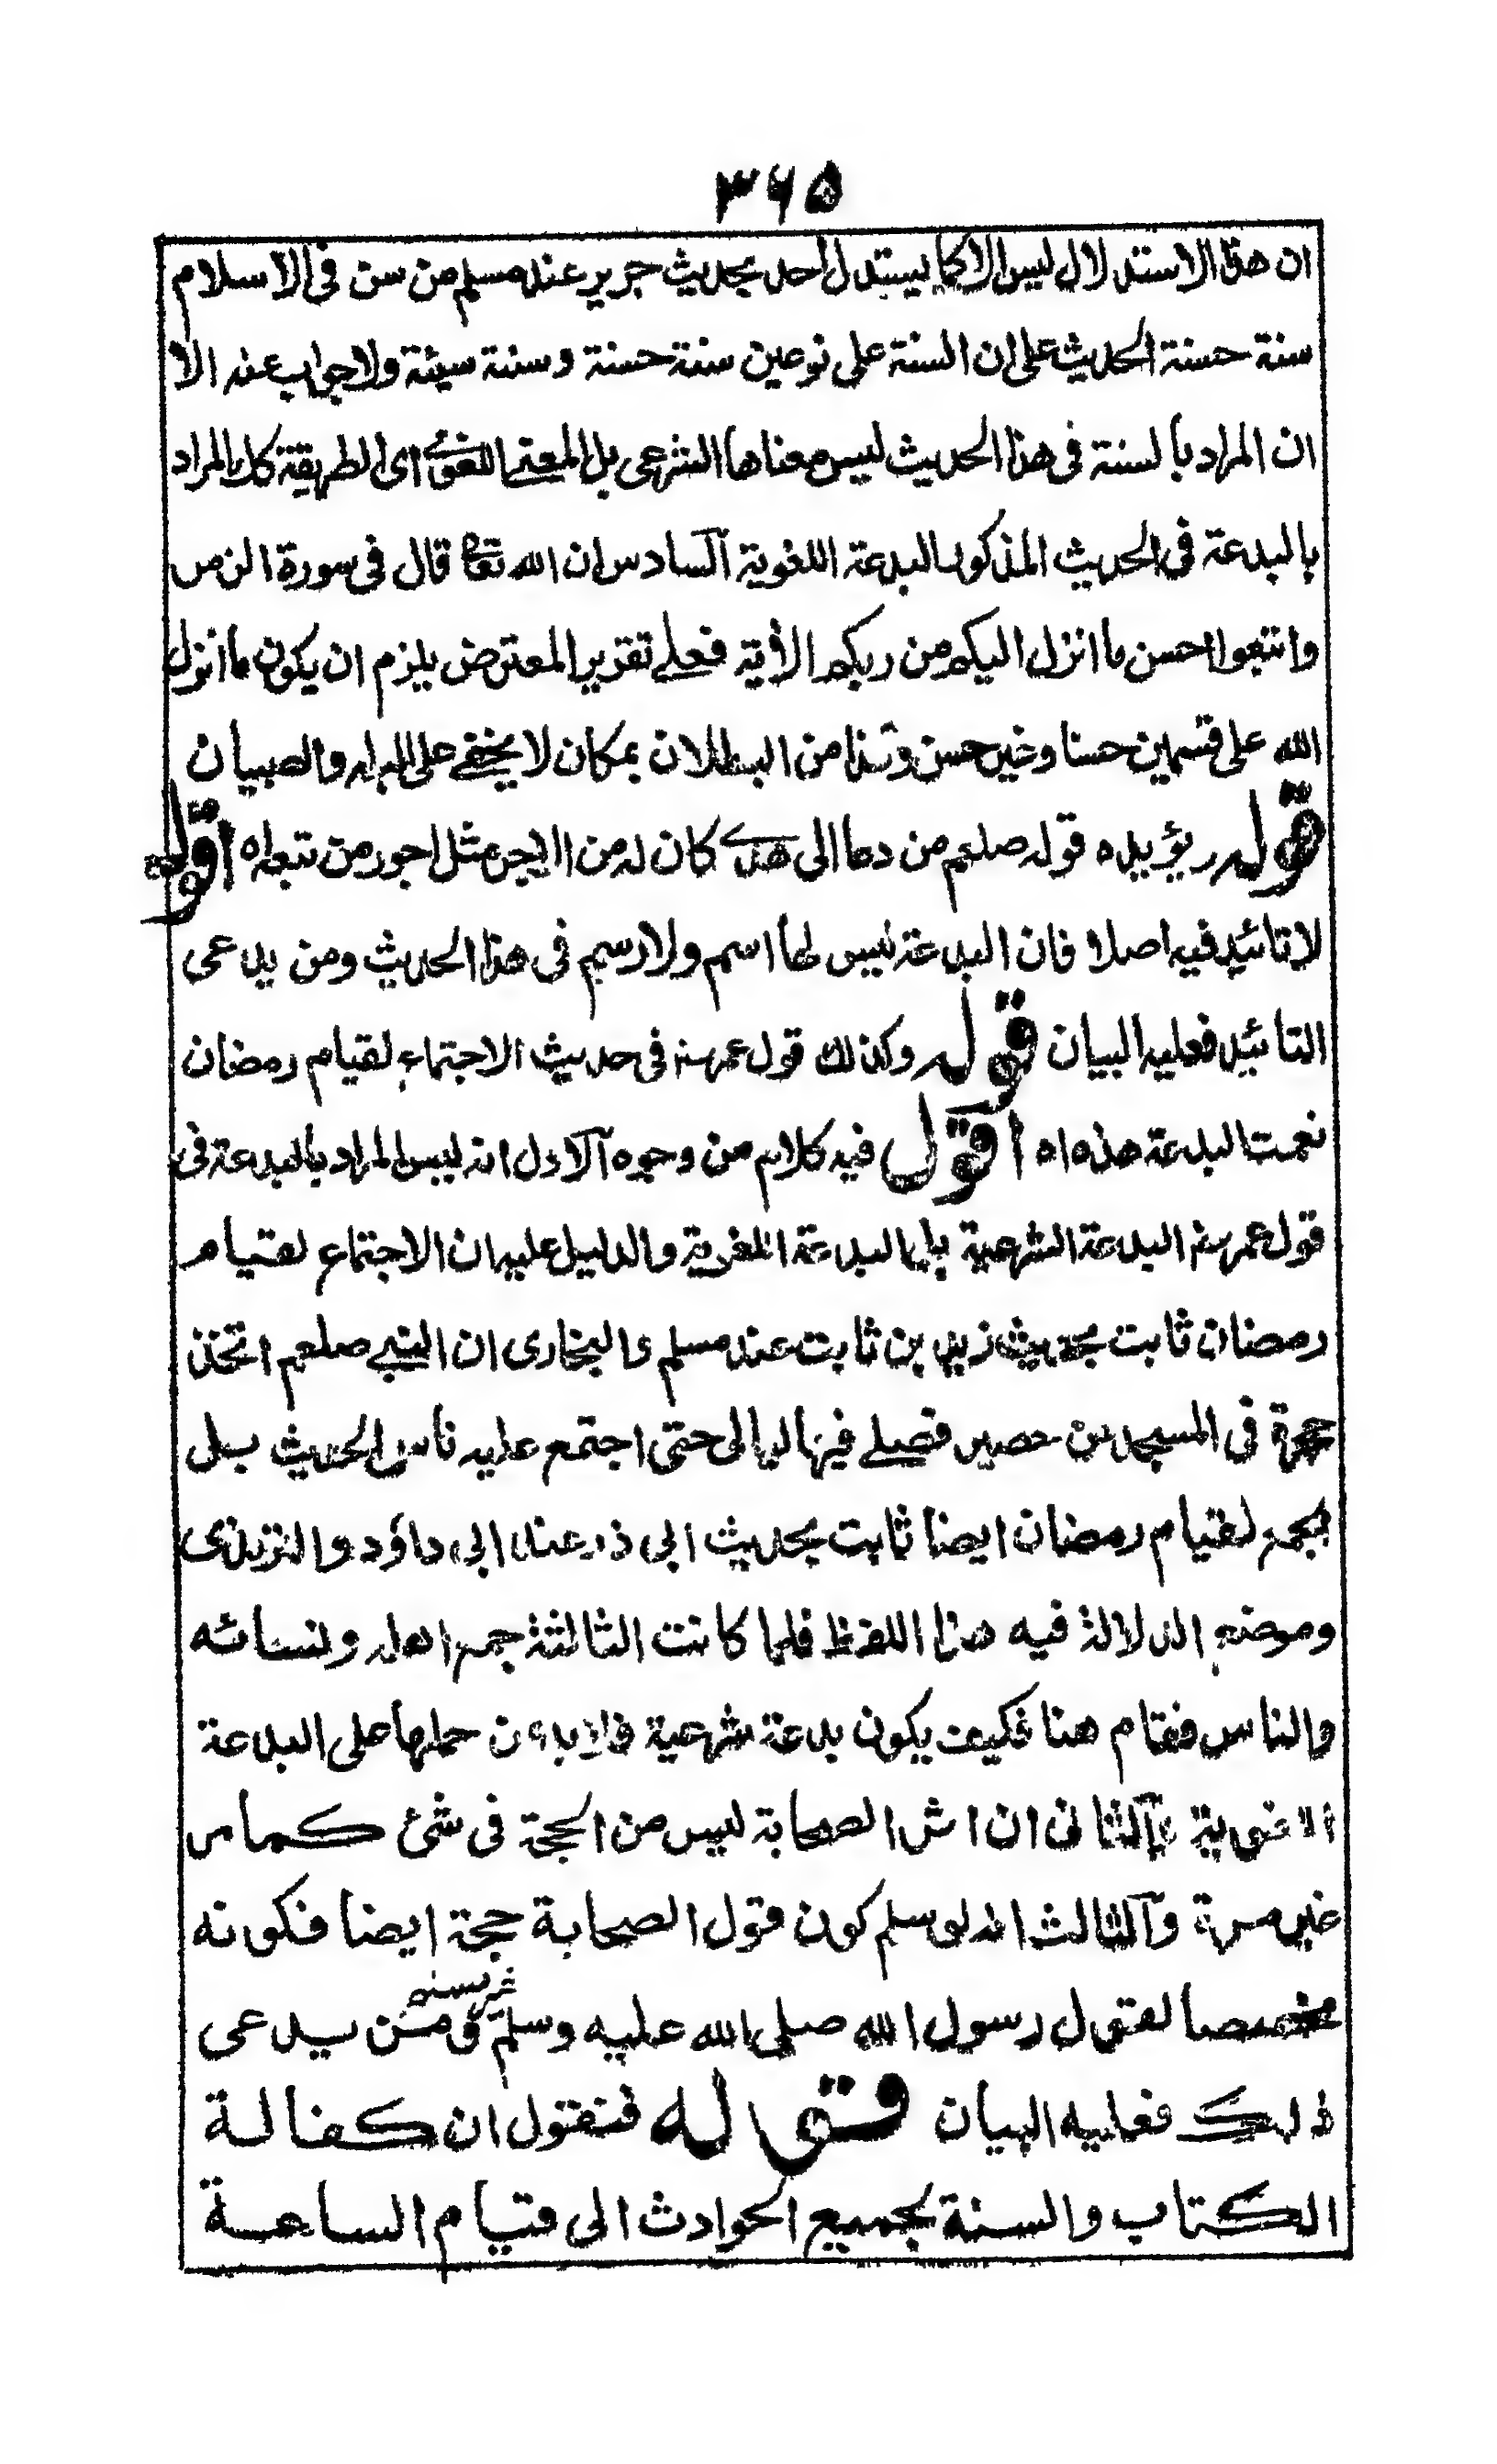 ٣٦٥
ان هذا الاستدلال ليس الا كما يستدل احد بحديث جرير عند مسلم من سن فى الاسلام
سنة حسنة الحديث على ان السنة على نوعين سنة حسنة وسنة سيئة ولا جواب عنه الا
ان المراد بالسنة فى هذا الحديث ليس معناها الشرعى بل المعنى اللغوى اى الطريقة كك المراد
بالبدعة فى الحديث المذكور البدعة اللغوية آلسادس ان الله تعا قال فى سورة الزمر
واتبعوا احسن ما انزل اليكم من ربكم الأية فعلى تقرير المعترض يلزم ان يكون ما انزل
الله على قسمين حسنا وغير حسن وهذا من البطلان بمكان لا يخفى على البله والصبيان
قوله ويؤيده قوله صلعم من دعا الى هدى كان له من الاجر مثل اجور من تبعه اه اقول
لا تائيد فيه اصلا فان البدعة ليس لها اسم ولا رسم فى هذا الحديث ومن يدعى
التائيد فعليه البيان قوله وكذلك قول عمر رضـ فى حديث الاجتماع لقيام رمضان
نعمت البدعة هذه اه اقول فيه كلام من وجوه آلاول انه ليس المراد بالبدعة فى
قول عمر رضـ البدعة الشرعية بل البدعة اللغوية والدليل عليه ان الاجتماع لقيام
رمضان ثابت بحديث زيد بن ثابت عند مسلم والبخارى ان النبى صلعم اتخذ
حجرة فى المسجد من حصير فصلى فيها ليالى حتى اجتمع عليه ناس الحديث بل
الجمع لقيام رمضان ايضا ثابت بحديث ابى ذر عند ابى داؤد والترمذى
وموضع الدلالة فيه هذا اللفظ فلما كانت الثالثة جمع اهله ونسائه
والناس فقام هنا فكيف يكون بدعة شرعية فلابد من حملها على البدعة
اللغوية وآلثانى ان اثر الصحابة ليس من الحجة فى شئ كما مر
غير مرة وآلثالث انه لو سلم كون قول الصحابة حجة ايضا فكونه
مخصصا لقول رسول الله صلى الله عليه وسلم غير مسلم ومن يدعى
ذلك فعليه البيان قوله فنقول ان كفالة
الكتاب والسنة لجميع الحوادث الى قيام الساعة